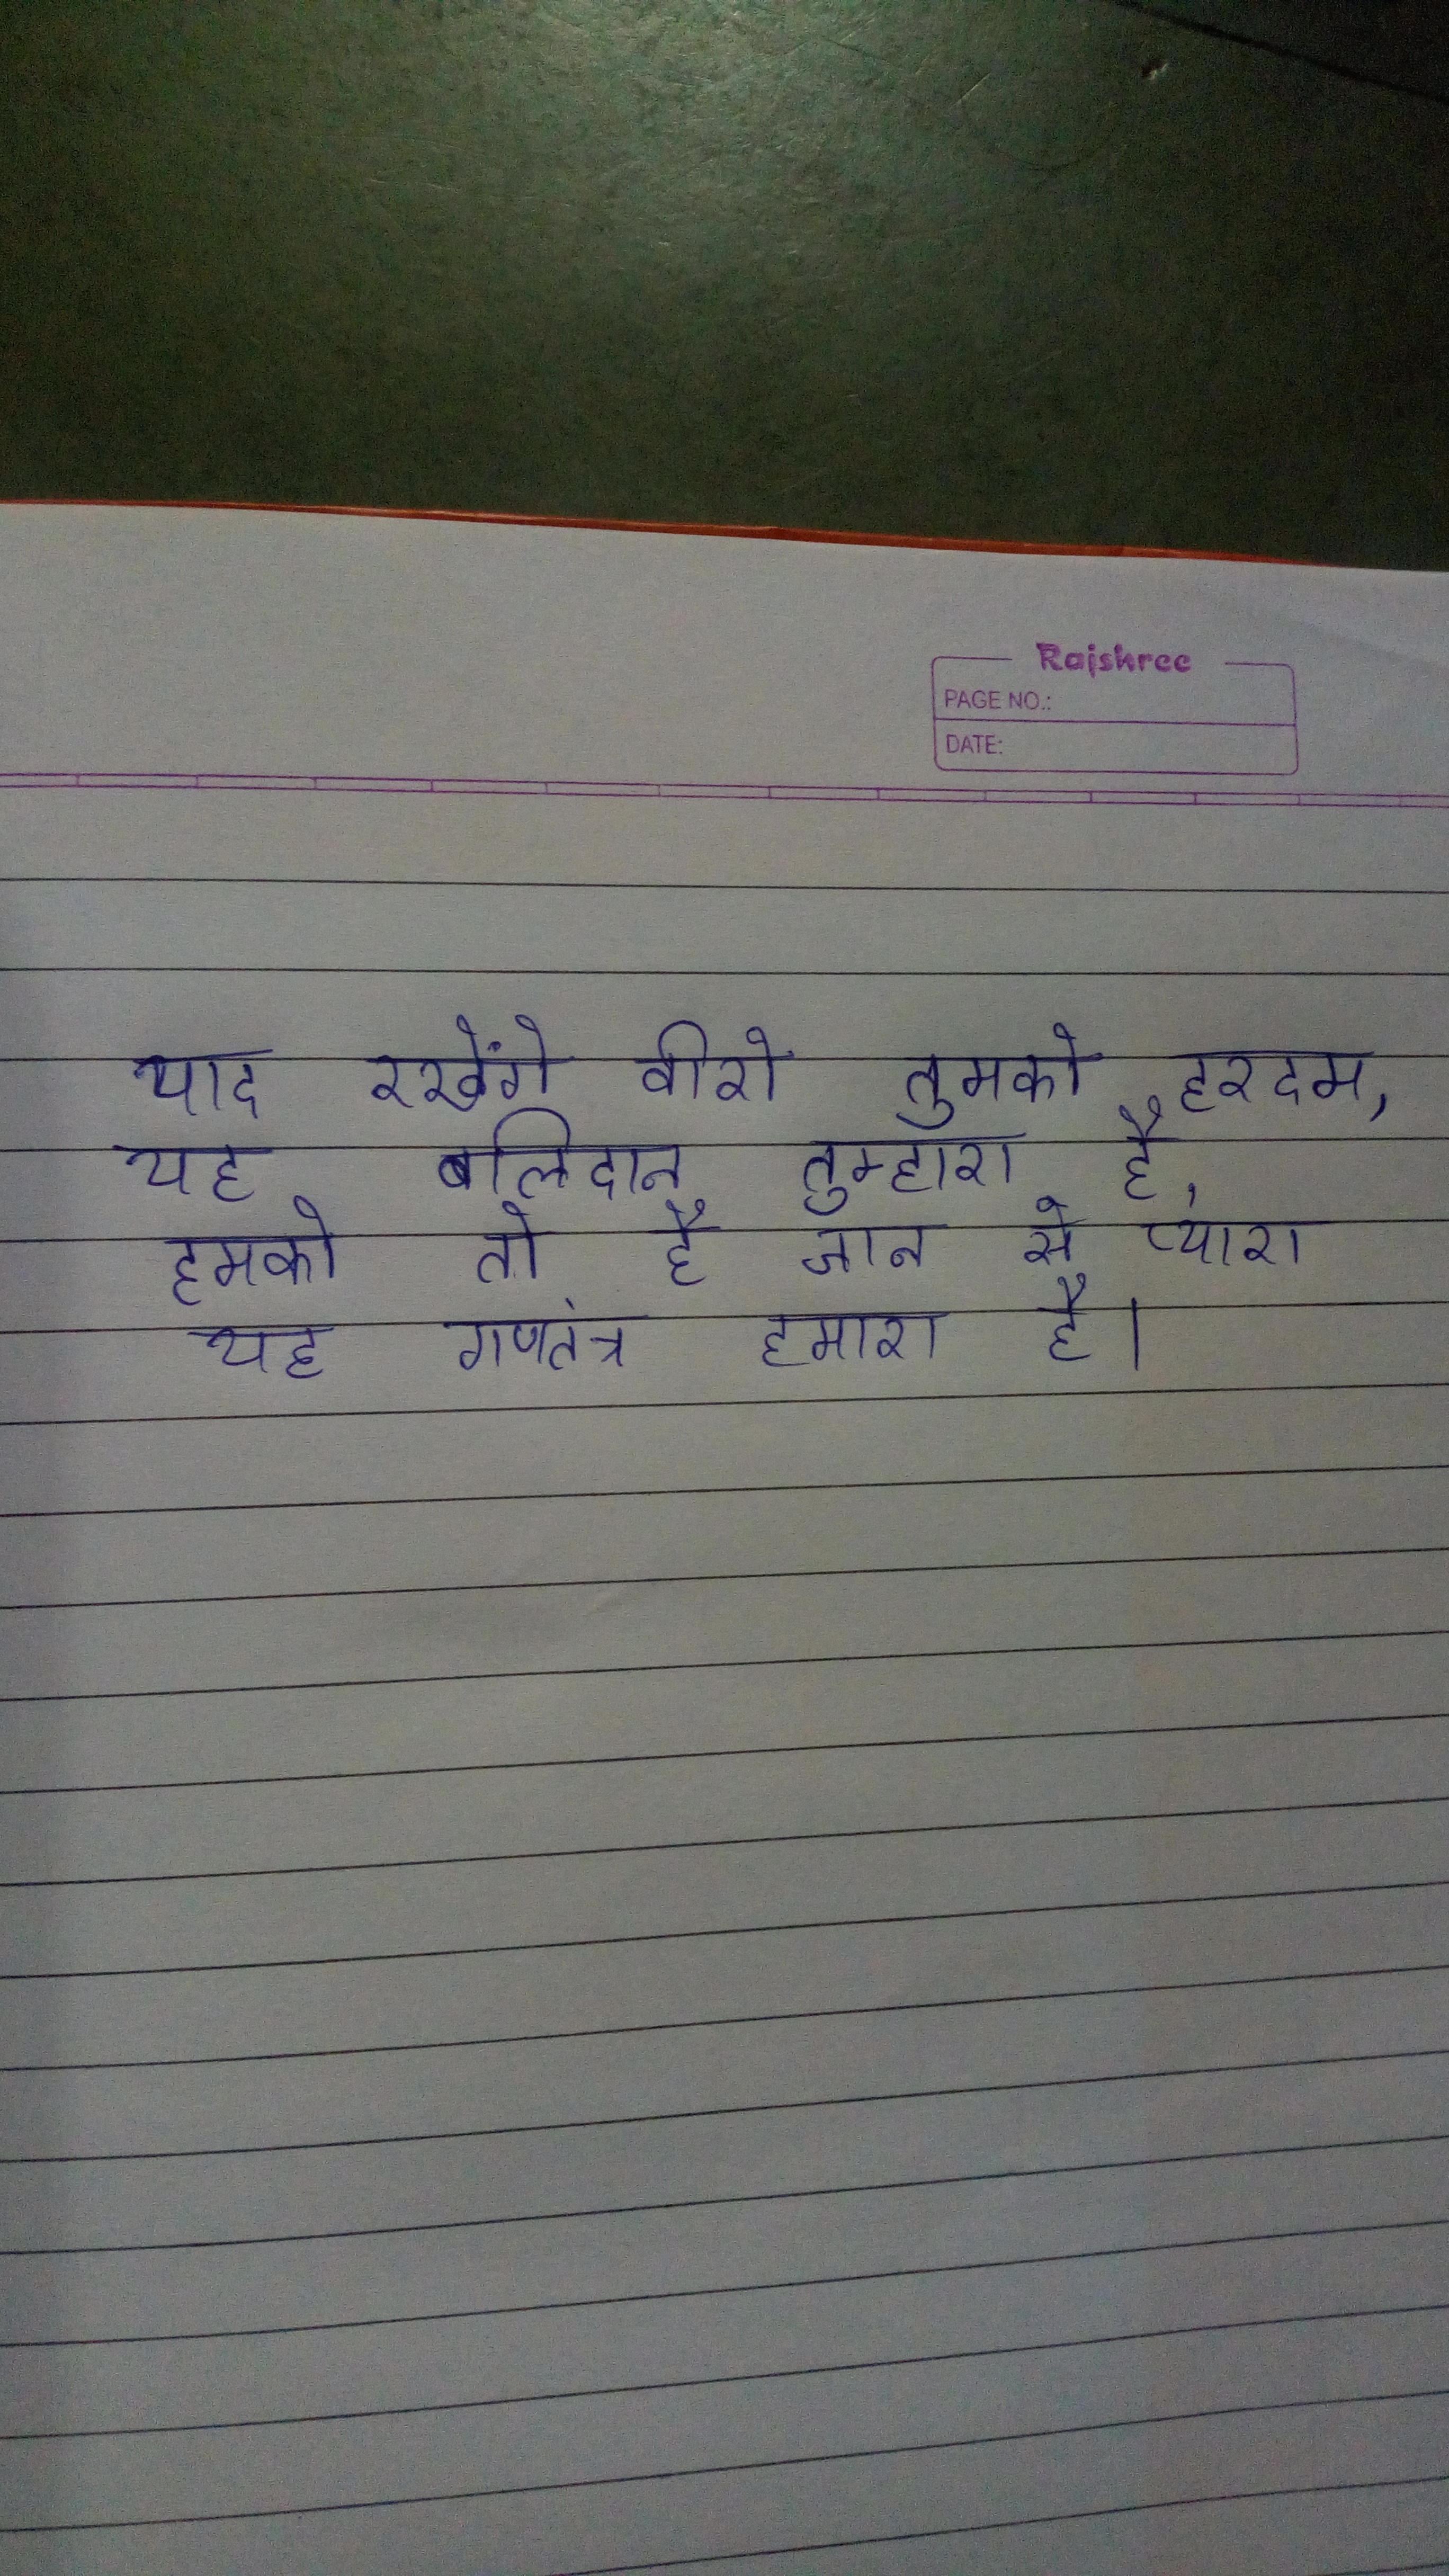 Rajshree
PAGE NO.:
DATE:
याद रखेंगे वीरो तुमको हरदम,
यह बलिदान तुम्हारा है,
हमको तो है जान से प्यारा
यह गणतंत्र हमारा है।